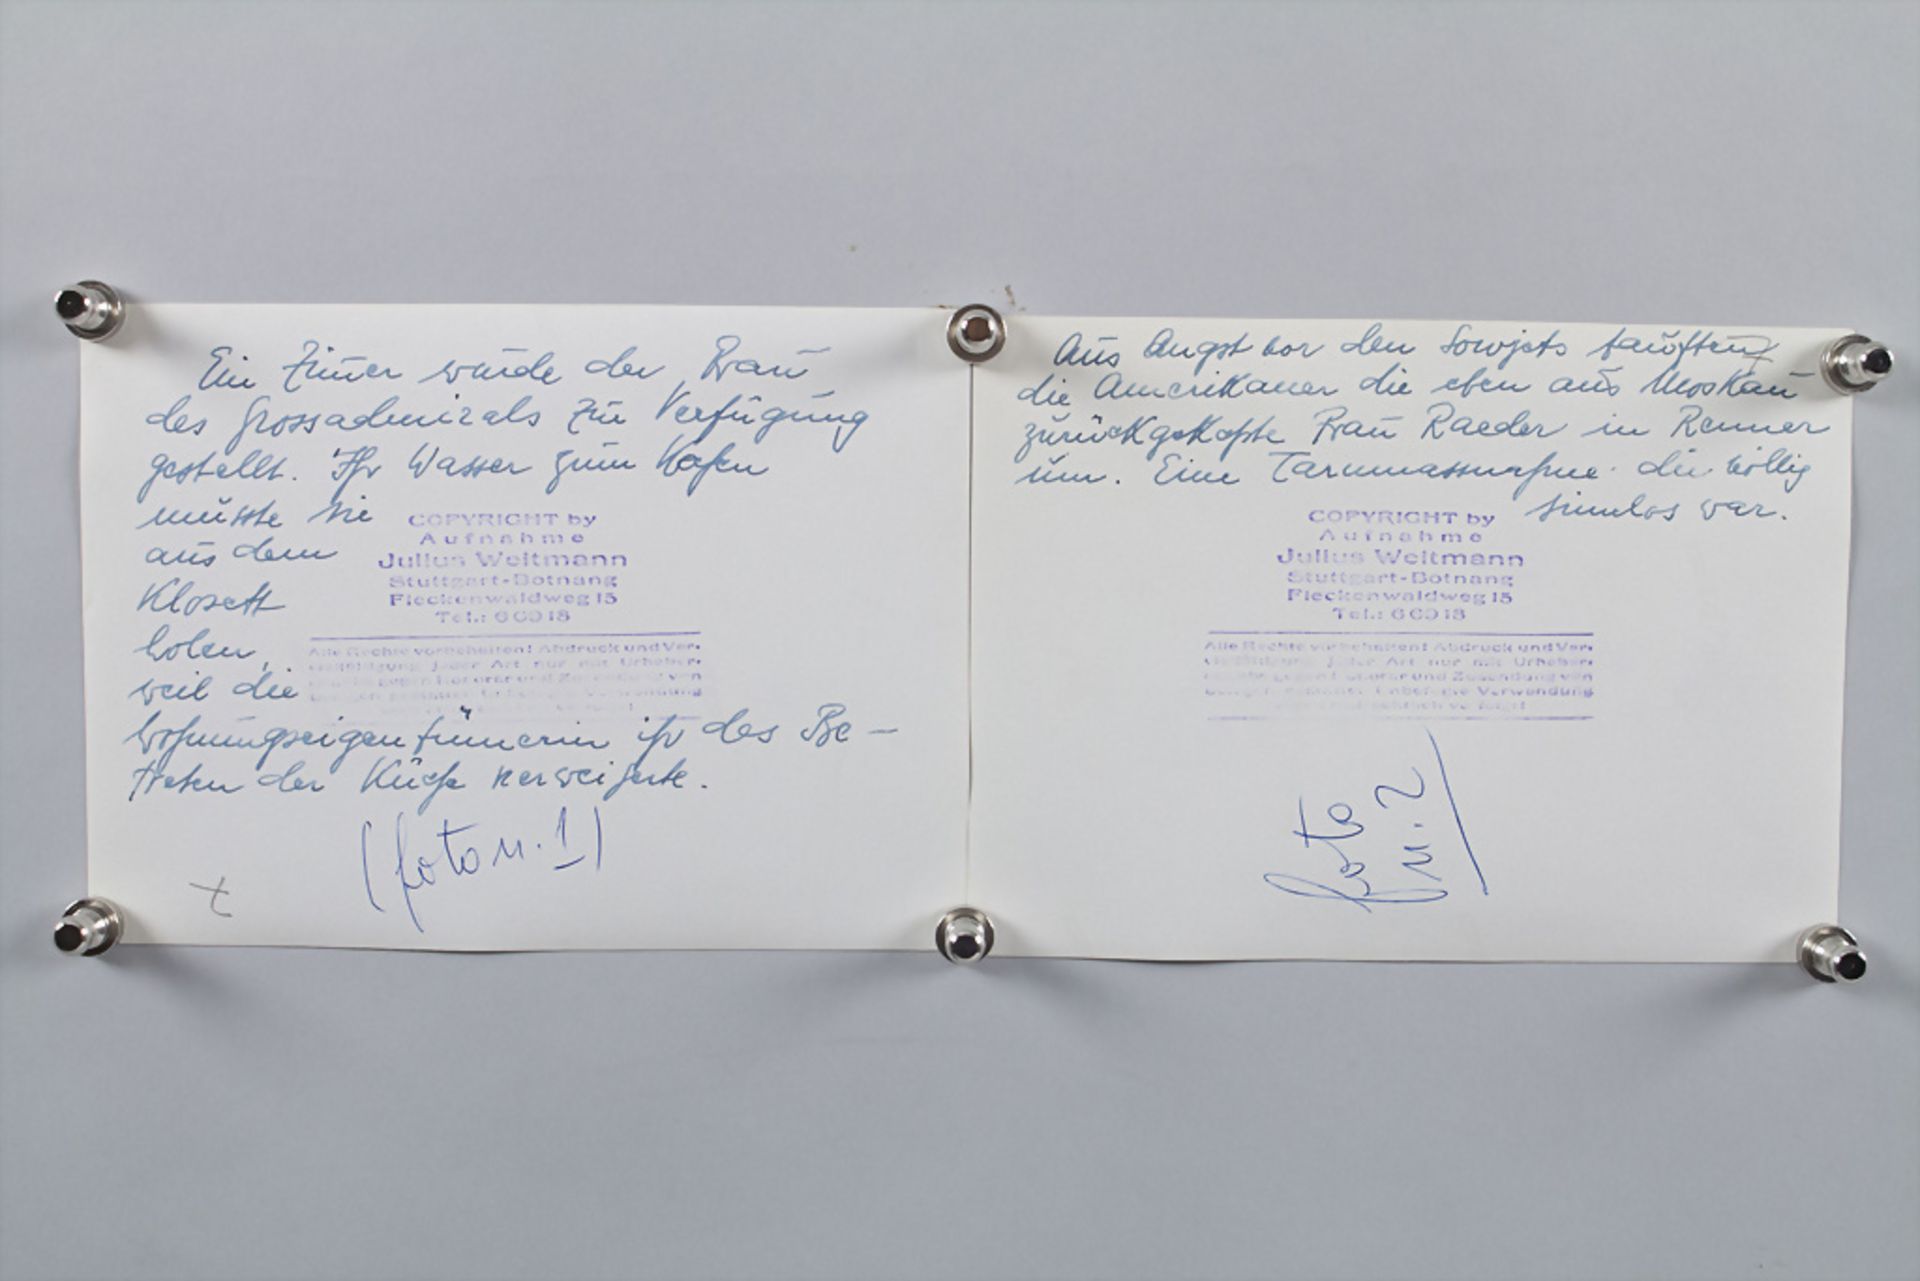 Ein Zimmer wurde der Frau
des Grossadmirals zur Verfügung
gestellt. Ihr Wasser zum Kochen
musste sie
aus dem
Klosett
holen,
weil die
Wohnungseigentümerin ihr das Be-
treten der Küche verweigerte.
(foto n. 1)
COPYRIGHT by
Aufnahme
Julius Weitmann
Stuttgart-Botnang
Fleckenwaldweg 15
Tel.: 66918
Alle Rechte vorbehalten! Abdruck und Ver-
jeder Art nur mit Urheber-
gegen Honorar und Zusendung von
Verwendung
Aus Angst vor den Sowjets tauften
die Amerikaner die eben aus Moskau
zurückgekehrte Frau Raeder in Renner
um. Eine Tarnmassnahme die völlig
sinnlos war.
COPYRIGHT by
Aufnahme
Julius Weitmann
Stuttgart-Botnang
Fleckenwaldweg 15
Tel.: 66918
Alle Rechte vorbehalten! Abdruck und Ver-
vielfältigung jeder Art nur mit Urheber-
gegen Honorar und Zusendung von
Unbefugte Verwendung
verfolgt!
foto
n. 2